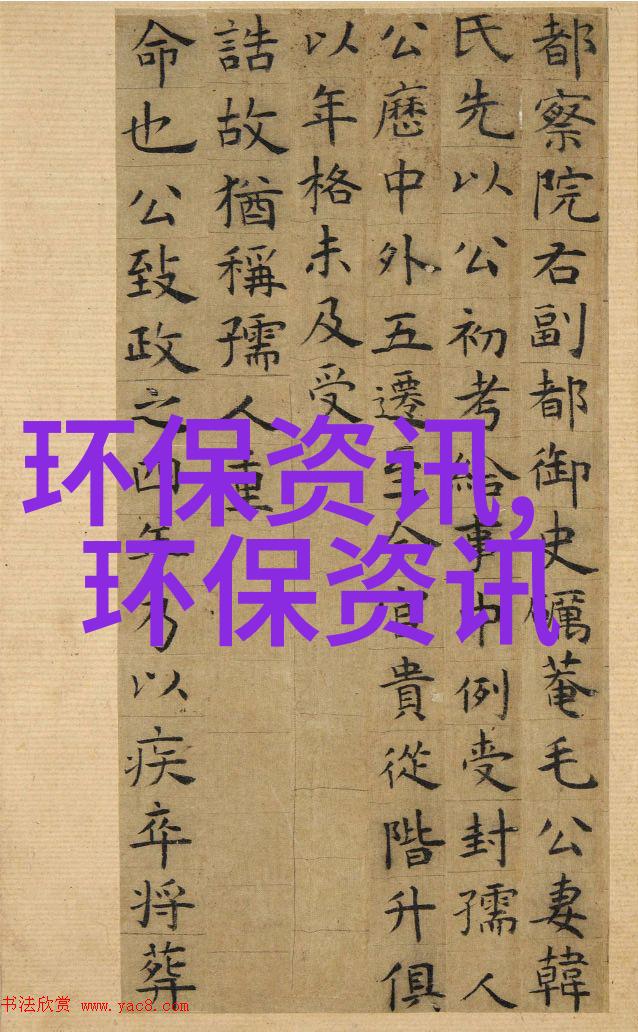 都察院右副都御史礪菴毛公妻韓
氏先以公初考給事中例受封孺人
公歷中外五遷至今官貴從階升俱
以年格未及受
誥故猶稱孺人重
命也公致政之四年乃以疾卒将葬
环保资讯,
环保资讯
书法欣赏 www.yac8.com